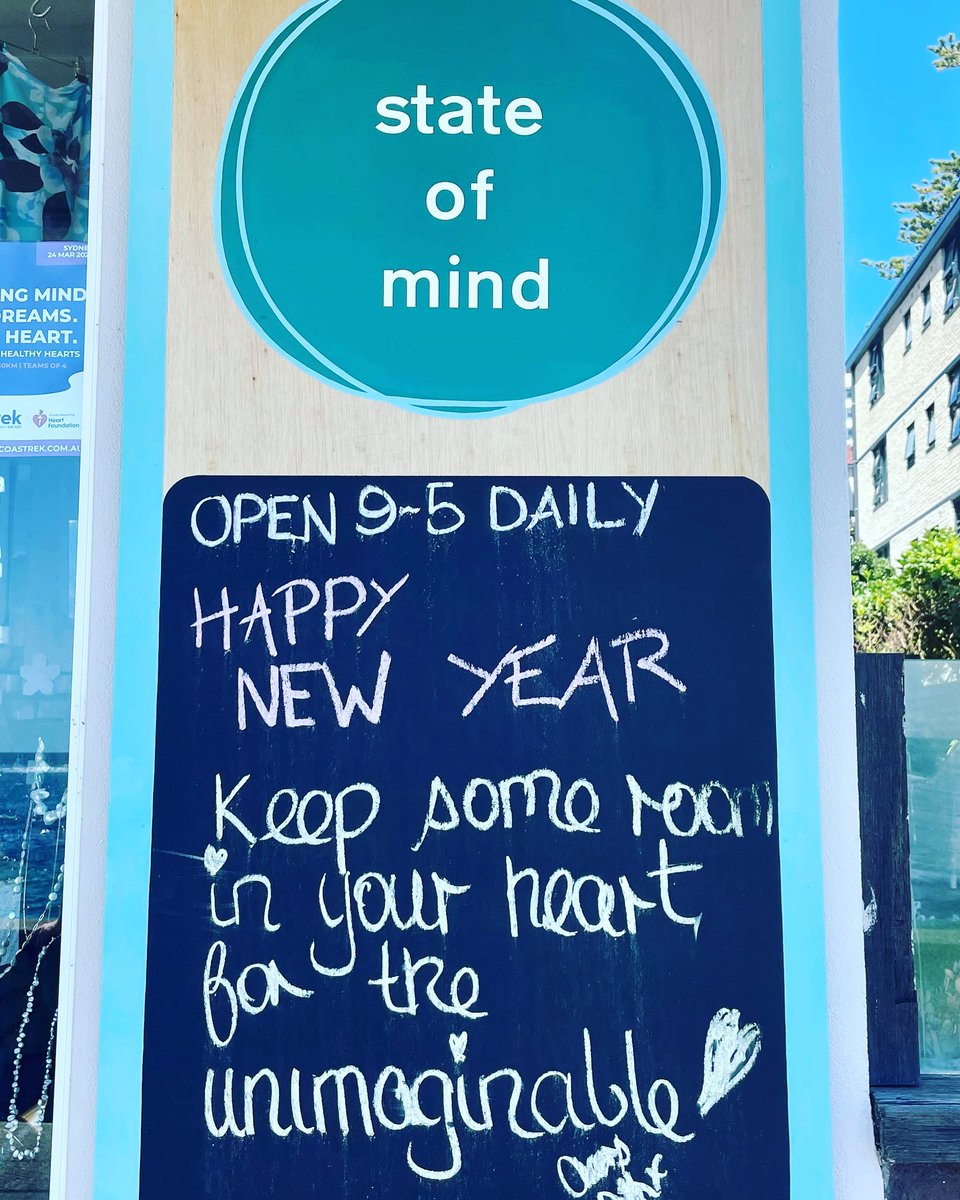 state
of
mind
SYDNE
24 MAR 202
NG MIND
DREAMS.
HEART.
HEALTHY HEARTS
0KM | TEAMS OF 4
rek
Heart
Foundation
COASTREK.COM.AU
OPEN 9-5 DAILY
HAPPY
NEW YEAR
Keep some room
in your heart
for the
unimaginable